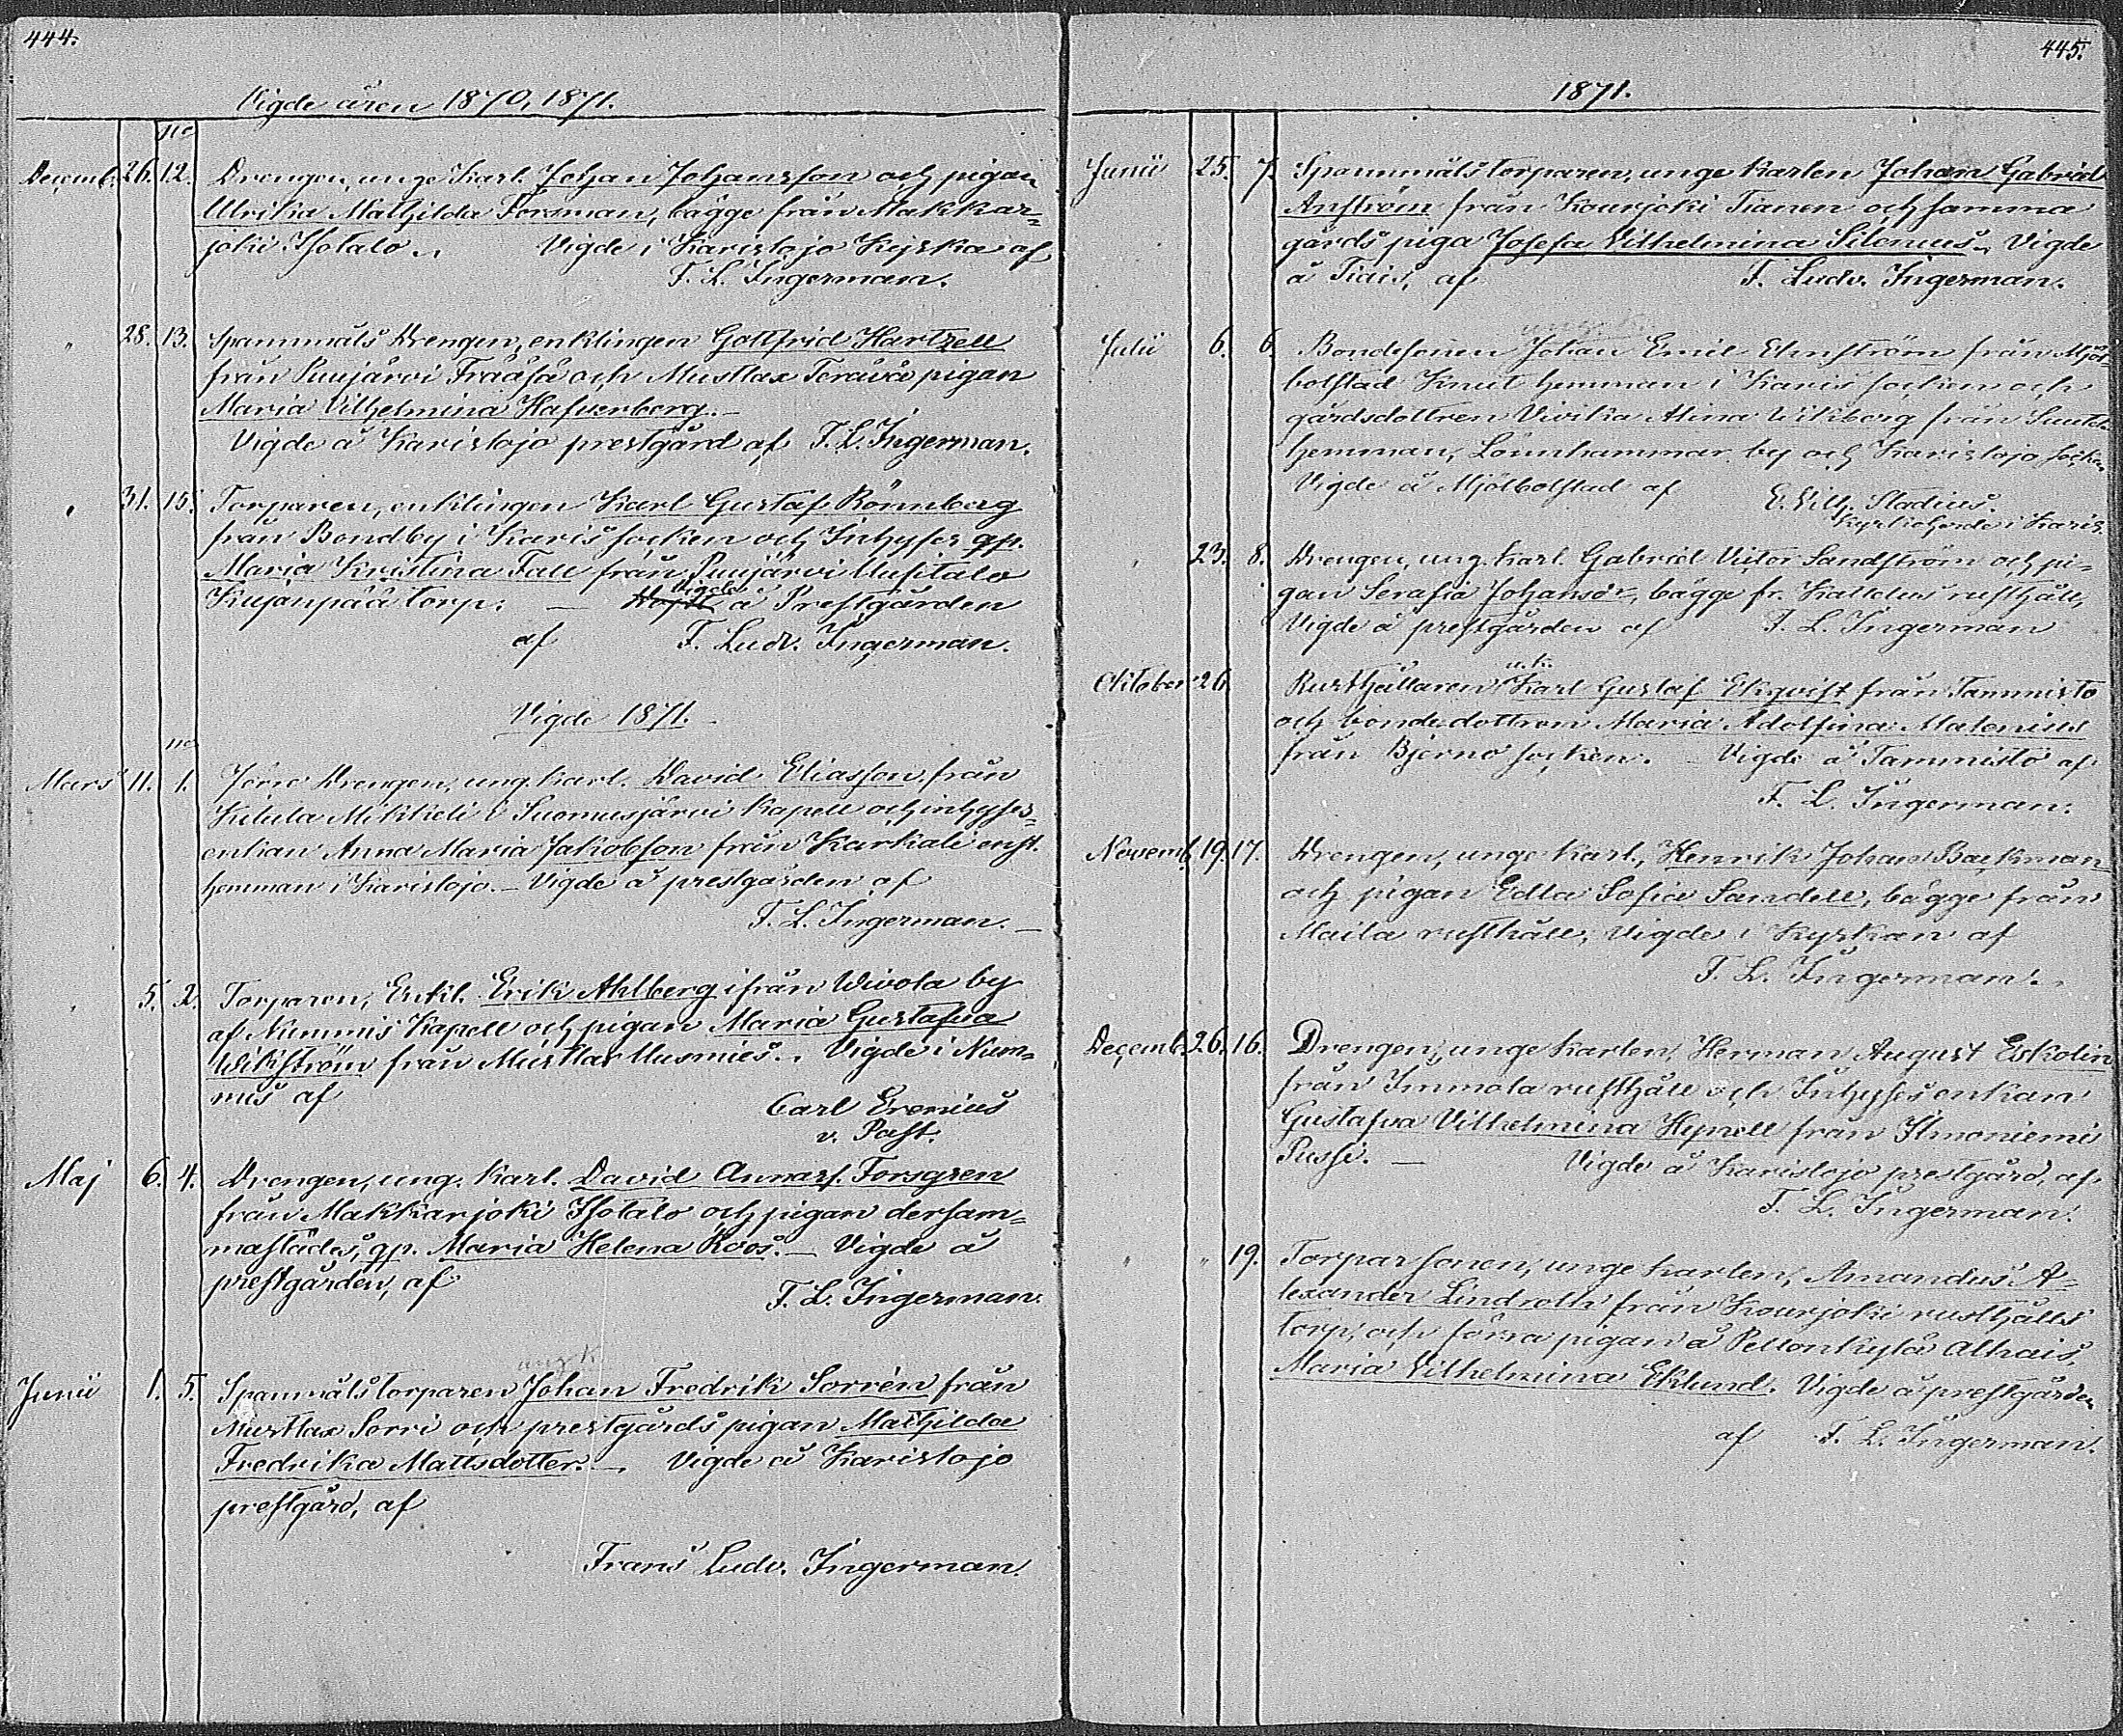 444.
Vigde åren 1870, 1871.
no
Decemb. 26. 12. Drengen, unge Karl. Johan Johansson och pigan
Ulrika Mathilda Forsman, bägge från Makkar=
joki Isotalo. Vigde i Karislojo Kyrka af
F. L. Ingerman.
" 28. 13. Spannmåls Drengen, enklingen Gottfrid Hartzell
från Puujärvi Frååså och Mustlax Terävä pigan
Maria Vilhelmina Hafverberg.
Vigde å Karislojo prestgård af F. L. Ingerman.
" 31. 15. Torparen, enklingen Karl Gustaf Rönnberg
från Bondby i Karis socken och Inhyses qp.
Maria Kristina Fall från Puujärvi Uusitalo
Vigde
Kujanpää torp. — å Prestgården
af F. Ludv. Ingerman.
Vigde 1871.
no
Mars 11. 1. Förre Drengen, ung. karl. David Eliasson från
Kitula Mikkeli i Suomusjärvi Kapell och inhyses=
enkan Anna Maria Jakobsson från Karkali
hemman i Karislojo. — Vigde å prestgården af
F. L. Ingerman. —
" 5. 2. Torparen, Enkl. Erik Ahlberg ifrån Wivola by
af Nummis Kapell och pigan Maria Gustafva
Wikström från Mustlax Uusmies. Vigde i Num=
mis af
Carl Erenius
v. Past.
Maj 6. 4. Drengen, ung. Karl. David Annasf. Forsgren
från Makkarjoki Isotalo och pigan dersam=
mastädes, qp. Maria Helena Roos. — Vigde å
prestgården, af
F. L. Ingerman.
ung k
Junii 1. 5. Spanmålstorparen Johan Fredrik Sorrén från
Mustlax Sorri och prestgårds pigan Mathilda
Fredrika Mattsdotter. — Vigde å Karislojo
prestgård, af
Frans Ludv. Ingerman.
445.
1871.
Junii 25. 7. Spannmålstorparen, unge Karlen Johan Gabriel
Anström från Kourjoki Tianen och samma
gårds piga Josefa Vilhelmina Silenius. Vigde
å Tiais, af F. Ludv. Ingerman.
ung. k.
Julii 6. 6. Bondesonen Johan Emil Elmström från Mjöl
bolstad Knut hemman i Karis socken och
gårdsdottren Vivika Alina Wikberg från
hemman, Lönnhammar by och Karislojo socken
Vigde å Mjölbolstad af E. Vilh. Stadius.
Kyrkoherde i Karis.
" 23. 8. Drengen, ung. karl. Gabriel Victor Sandström och pi=
gan Serafia Johansdr, bägge fr. Kattelus rusthåll,
Vigde å prestgården af F. L. Ingerman
u. k.
Oktober 26. Rusthållaren Karl Gustaf Ekqvist från Tammisto
och bondedottren Maria Adolfina Malenius
från Bjerno socken. — Vigde å Tammisto af
F. L. Ingerman.
Novemb. 19. 17. Drengen, unge karl., Henrik Johan Backman
och pigan Edla Sofia Sandell, bägge från
Maila rusthåll, Vigde i Kyrkan af
F. L. Ingerman.
Decemb. 26. 16. Drengen, unge karlen, Herman August Eskolin
från Immola rusthåll och Inhyses enkan
Gustafva Vilhelmina Hynell från Ilmoniemi
Pussi. — Vigde å Karislojo prestgård, af
F. L. Ingerman.
" " 19. Torparsonen, unge karlen, Amandus A=
lexander Lindroth från Kourjoki rusthålls
torp, och förra pigan å Pellonkylä Alhais,
Maria Vilhelmina Eklund. Vigde å prestgården
af F. L. Ingerman.